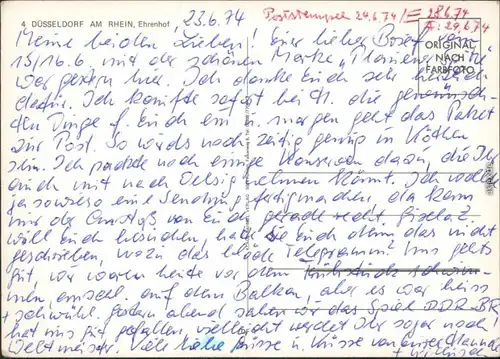 4 DÜSSELDORF AM RHEIN, Ehrenhof
23.6.74
Poststempel 24.6.74
28.6.74
A: 29.6.74
ORIGINAL
NACH
FARBFOTO
Meine beiden Lieben! Euer lieber Brief vom
15/16.6. mit der schönen Marke
war gestern hier. Ich danke Euch sehr herzlich
dafür. Ich konnte sofort bei die gewünsch-
ten Dinge f. Euch ein u. morgen geht das Paket
zur Post. So wird's noch zeitig genug in Köthen
sein. Ich packte noch einige Konserven dazu, die Ihr
euch mit nach Oelsig nehmen könnt. Ich wollte
ja sowieso eine Sendung fertigmachen, da kam
mir der von Euch gerade recht. Gisela
will Euch besuchen, hat sie Euch denn das nicht
geschrieben, wozu das Telegramm? Uns geht's
gut, wir waren heute vor dem
auf dem Balkon, aber es war heiß
+ schwül. Gestern abend sahen wir das Spiel DDR-BR
hat uns gut gefallen, vielleicht werdet Ihr sogar noch
Weltmeister. Viele liebe Grüsse u. Küsse von eurer